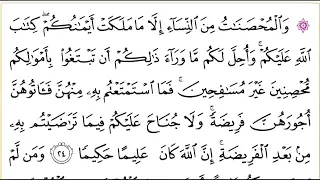 ۞ وَٱلْمُحْصَنَٰتُ مِنَ ٱلنِّسَآءِ إِلَّا مَا مَلَكَتْ أَيْمَٰنُكُمْ ۖ كِتَٰبَ
ٱللَّهِ عَلَيْكُمْ ۚ وَأُحِلَّ لَكُم مَّا وَرَآءَ ذَٰلِكُمْ أَن تَبْتَغُوا۟ بِأَمْوَٰلِكُم
مُّحْصِنِينَ غَيْرَ مُسَٰفِحِينَ ۚ فَمَا ٱسْتَمْتَعْتُم بِهِۦ مِنْهُنَّ فَـَٔاتُوهُنَّ
أُجُورَهُنَّ فَرِيضَةً ۚ وَلَا جُنَاحَ عَلَيْكُمْ فِيمَا تَرَٰضَيْتُم بِهِۦ
مِنۢ بَعْدِ ٱلْفَرِيضَةِ ۚ إِنَّ ٱللَّهَ كَانَ عَلِيمًا حَكِيمًا ٢٤ وَمَن لَّمْ